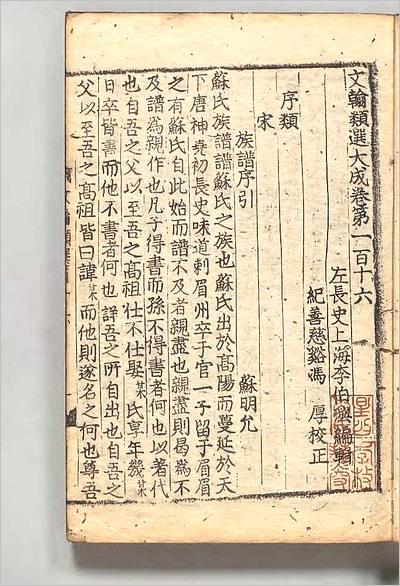 文翰類選大成卷第一百十六
左長史上海李伯璵編輯
紀善慈谿馮　厚校正
序類
宋
族譜序引　蘇明允
蘇氏族譜譜蘇氏之族也蘇氏出於高陽而蔓延於天
下唐神堯初長史味道刺眉州卒于官一子留于眉眉
之有蘇氏自此始而譜不及者親盡也親盡則曷爲不
及譜爲親作也凡子得書而孫不得書者何也以著代
也自吾之父以至吾之高祖仕不仕娶某氏享年幾某
日卒皆書而他不書者何也詳吾之所自出也自吾之
父以至吾之高祖皆曰諱某而他則遂名之何也尊吾